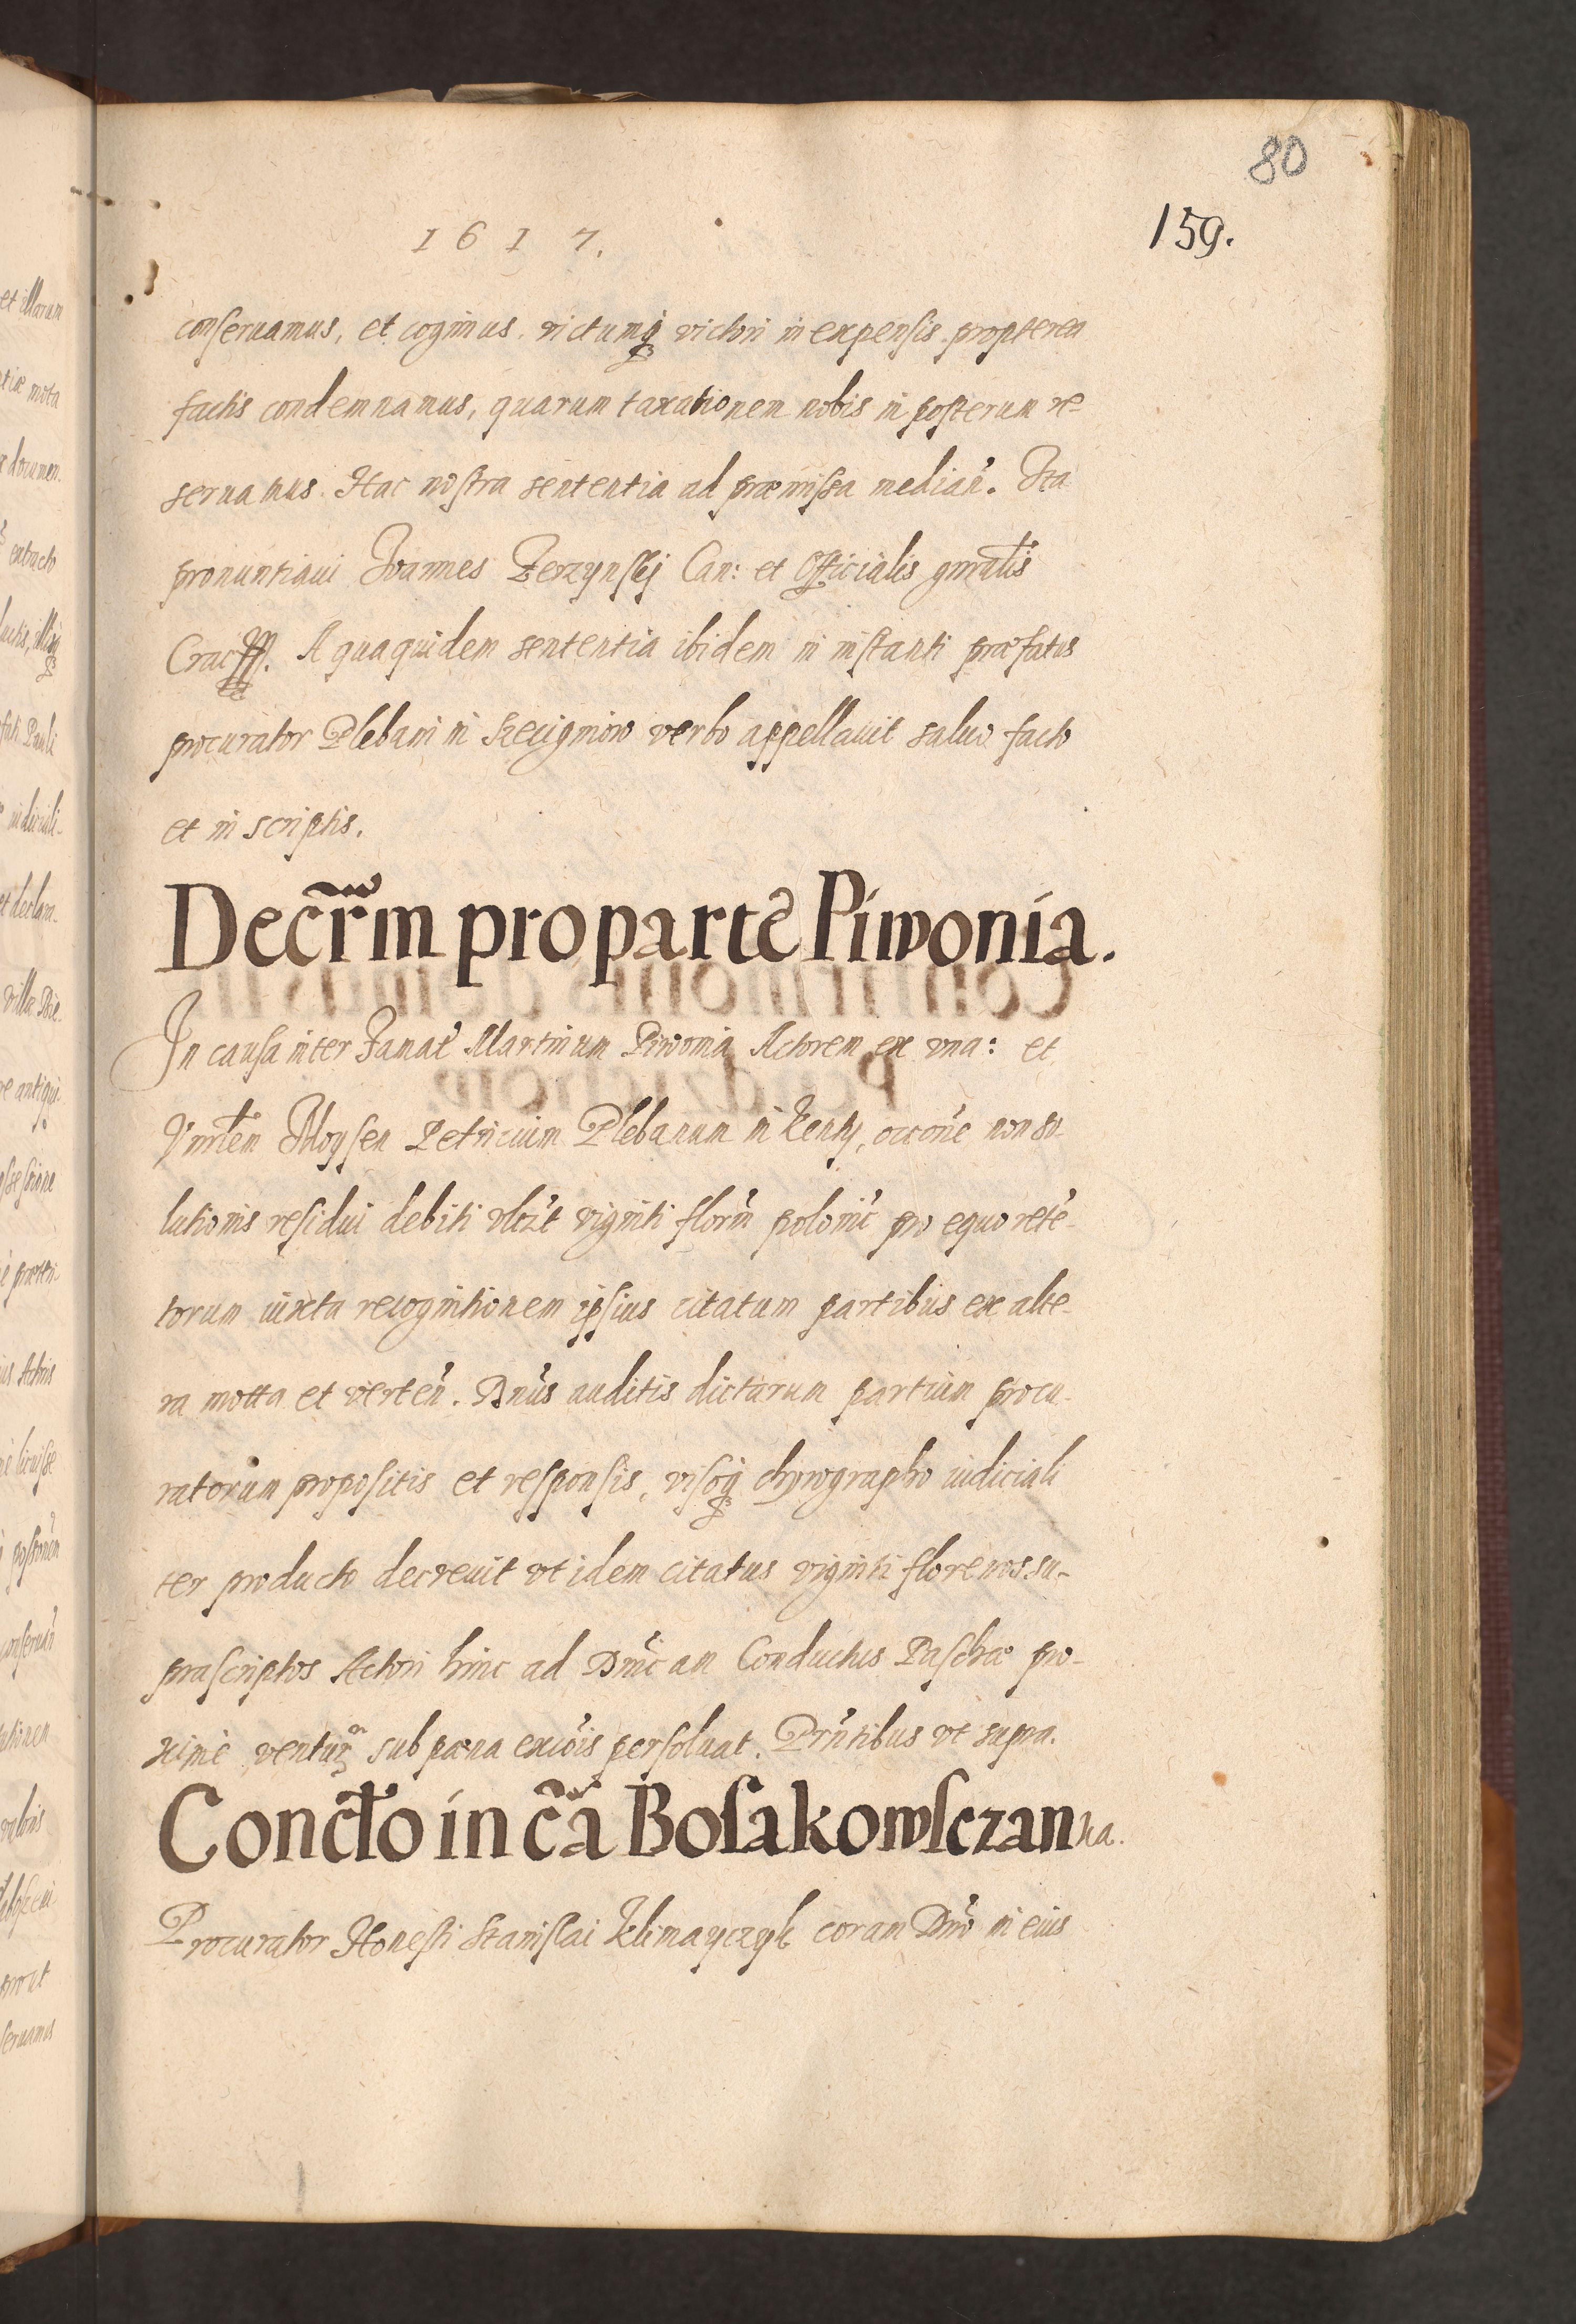 80
159.
1617.
conseruamus, et cogimus. victumq victori in expensis propterea
factis condemnamus, quarum taxationem nobis in posterum re-
seruamus. Hac nostra sententia ad præmissa median̄. Ita
pronuntiaui Joannes Zerzynskj Can: et Officialis gnralis
A quaquidem sententia ibidem in instanti præfatus
procurator Plebani in verbo appellauit saluo facto
et in scriptis.
Decr̃m pro parte Piwonia.
In causa inter Famat Martinum Piwonia Actorem ex vna: et
Moysen Petricium Plebanum in Kenty, occōne non so-
lutionis residui debiti viginti florn̄ polonic̄ pro equo retē-
torum iuxta recognitionem ipsius citatum partibus ex alte-
ra motta et vertēn. Dn̄us auditis dictarum partium procu-
ratorum propositis et responsis, visoq chyrographo iudiciali
ter producto decreuit vt idem citatus viginti florenos su-
prascriptos Actori hinc ad Dn̄icam Conductus Paschæ pro-
xime ventur sub pæna exc̄ōis persoluat. Prn̄tibus vt supra.
Conclt̄o in cã Bosakowsczanka.
Procurator Honesti Stanislai Klimayczyk coram Dn̄o in eius